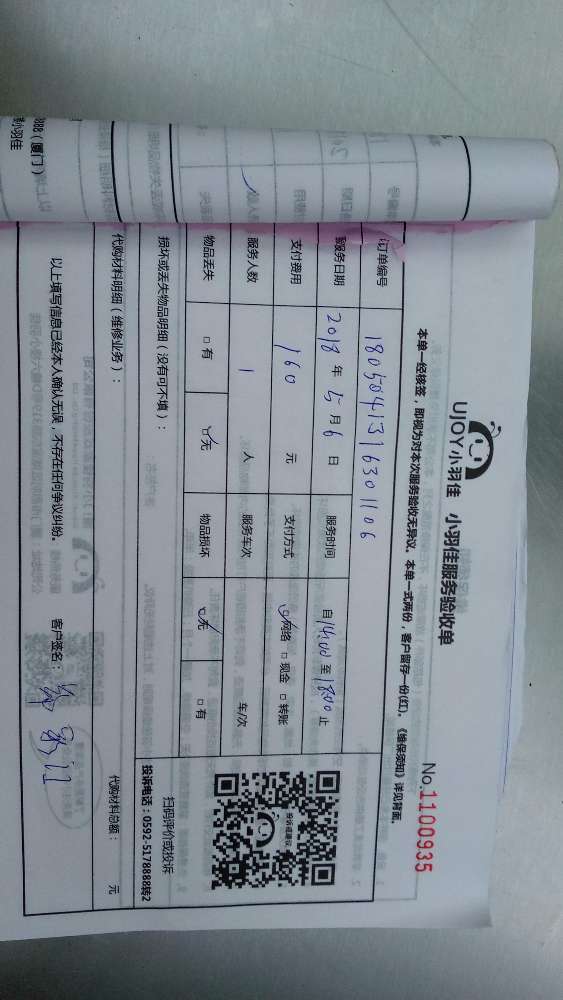 UJOY小羽佳 小羽佳服务验收单
No.1100935
本单一经核签，即视为对本次服务验收无异议。本单一式两份，客户留存一份(红)。《维保须知》详见背面。
订单编号 1805041316301106
服务日期 2018 年 5 月 6 日 服务时间 自 14:00 至 18:00 止
支付费用 160 元 支付方式 网络 现金 转账
服务人数 1 人 服务车次 车/次
物品丢失 有 无 物品损坏 无 有
投诉或建议
扫码评价或投诉
投诉电话：0592-5178888转2
损坏或丢失物品明细（没有可不填）：
代购材料明细（维修业务）：
代购材料总额： 元
以上填写信息已经本人确认无误，不存在任何争议纠纷。 客户签名：
888（厦门）
小羽佳